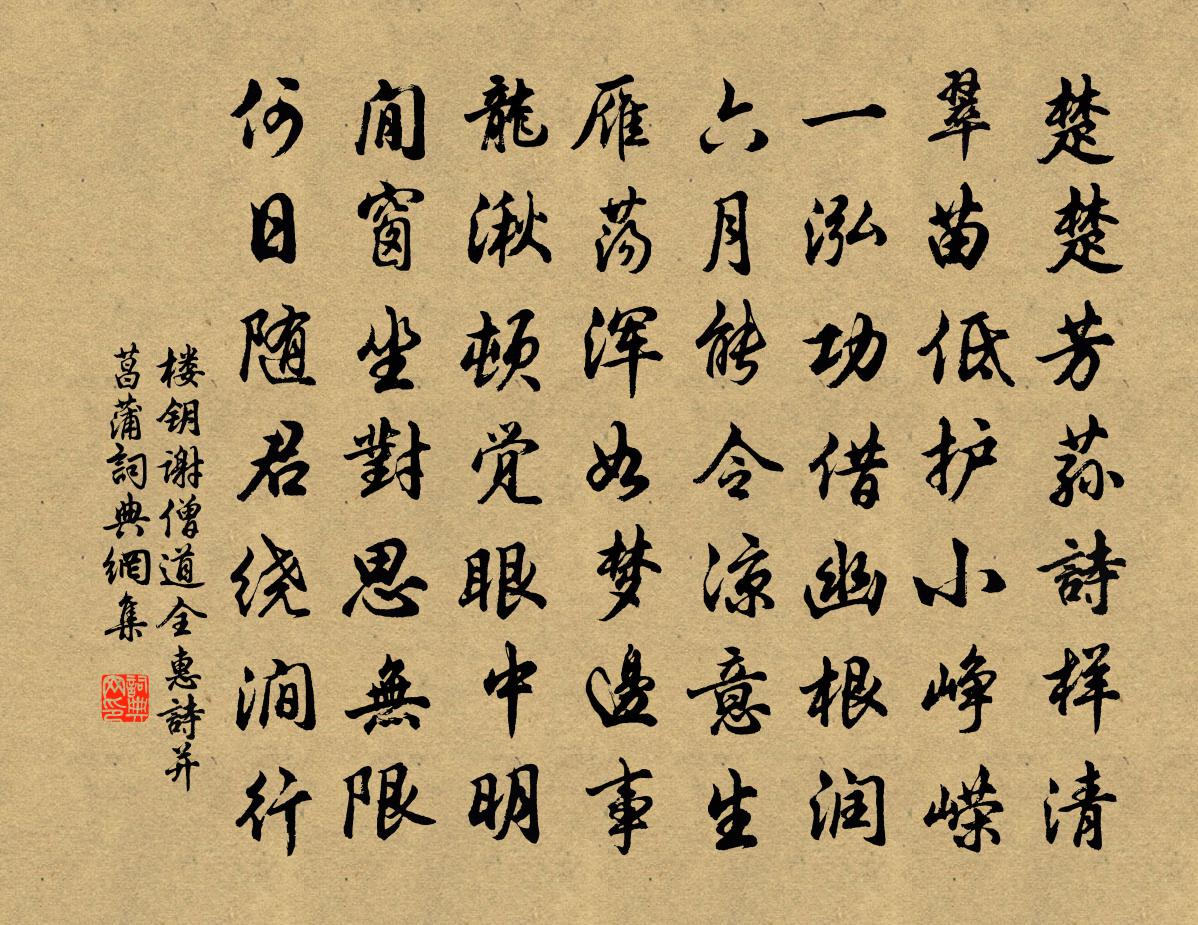 楚楚芳荪詩样清
翠苗低护小峥嵘
一泓功借幽根润
六月能令凉意生
雁荡浑如梦邊事
龍湫顿觉眼中明
閒窗坐對思無限
何日随君绕涧行
楼钥谢僧道全惠詩并
菖蒲詞典網集
詞典网印